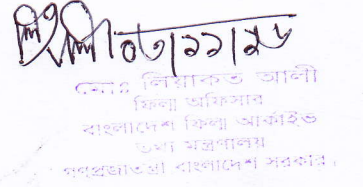 ০৩।১১।১৬
মোঃ লিয়াকত আলী
ফিল্ম অফিসার
বাংলাদেশ ফিল্ম আর্কাইভ
তথ্য মন্ত্রণালয়
গণপ্রজাতন্ত্রী বাংলাদেশ সরকার।